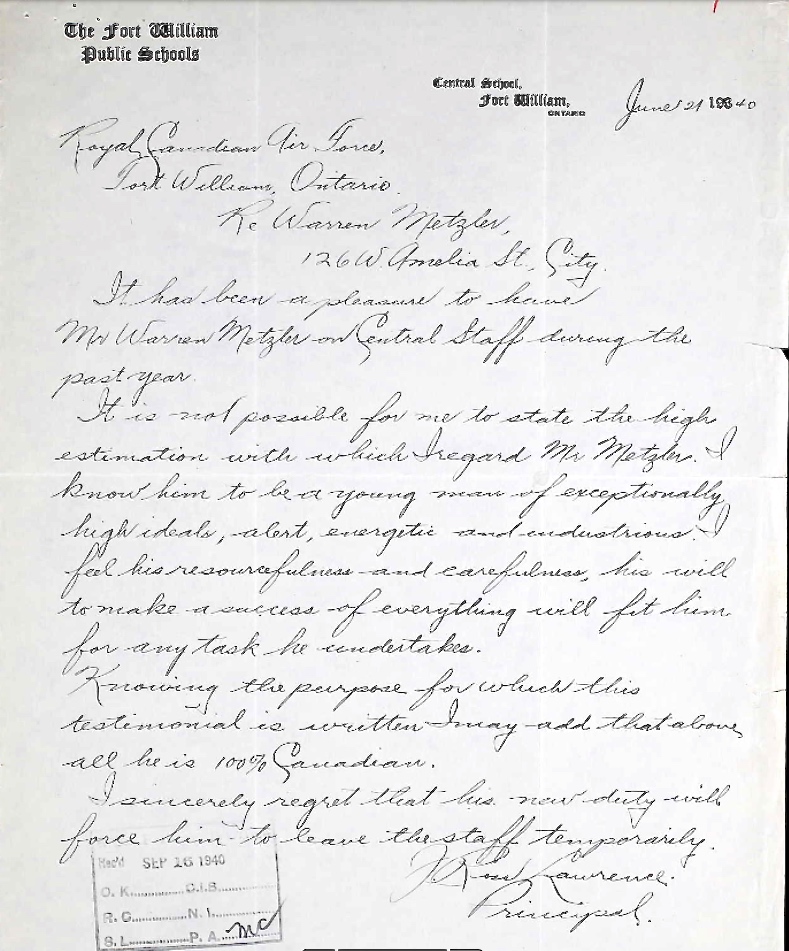 The Fort William
Public Schools
Central School,
Fort William,
ONTARIO
June 21 1940
Royal Canadian Air Force,
Fort William, Ontario.
Re Warren Metzler,
126 W. Amelia St., City.
It has been a pleasure to have
Mr Warren Metzler on Central Staff during the
past year.
It is not possible for me to state the high
estimation with which I regard Mr Metzler. I
know him to be a young man of exceptionally
high ideals, alert, energetic and industrious. I
feel his resourcefulness and carefulness, his will
to make a success of everything will fit him
for any task he undertakes.
Knowing the purpose for which this
testimonial is written I may add that above
all he is 100% Canadian.
I sincerely regret that his new duty will
force him to leave the staff temporarily.
J Ross Lawrence.
Principal.
Rec'd SEP 16 1940
O. K. C.I.S.
R. C. N. I.
S. L. P. A. MC